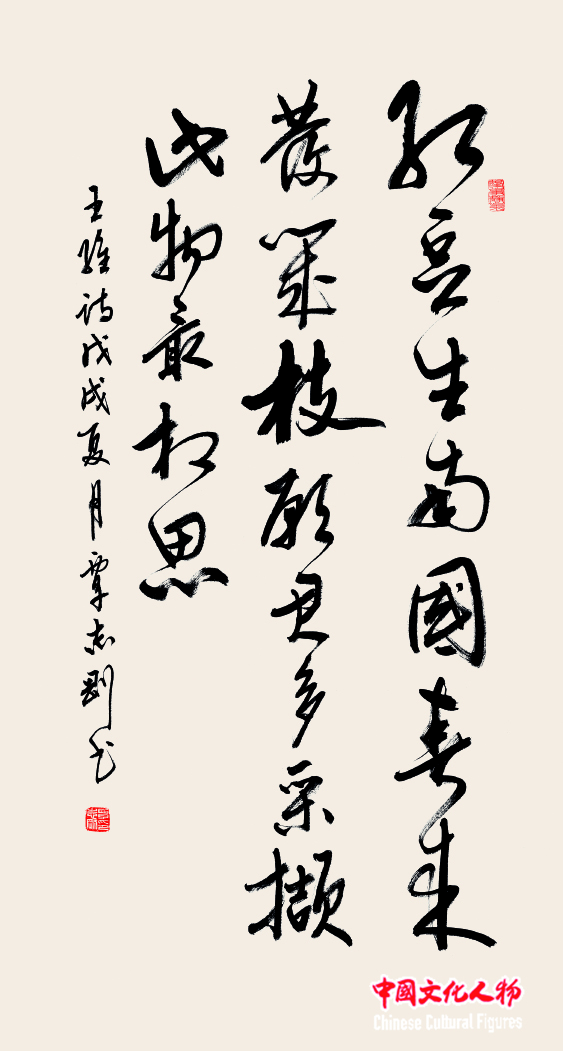 红豆生南國春来
發幾枝願君多采撷
此物最相思
王維诗戊戌夏月覃志剛书
中國文化人物
Chinese Cultural Figures